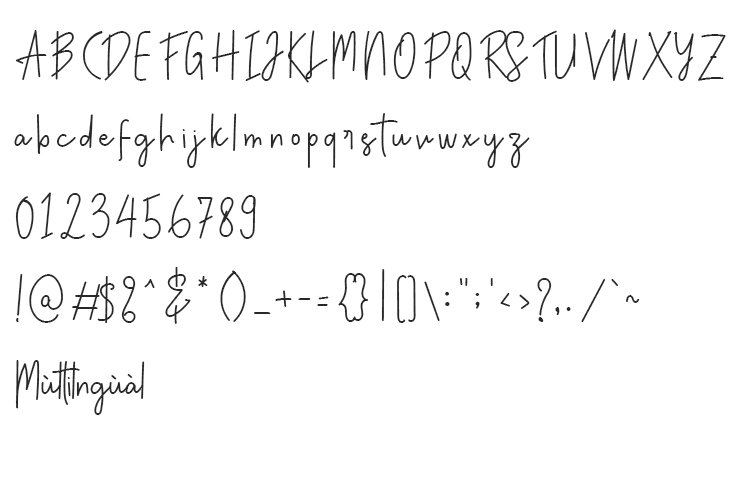 ABCDEFGHIJKLMNOPQRSTUVWXYZ
abcdefghijklmnopqrstuvwxyz
0123456789
!@#$%^&*()_+-={}|[]\:";'<>?,./`~
Mùltilngùàl